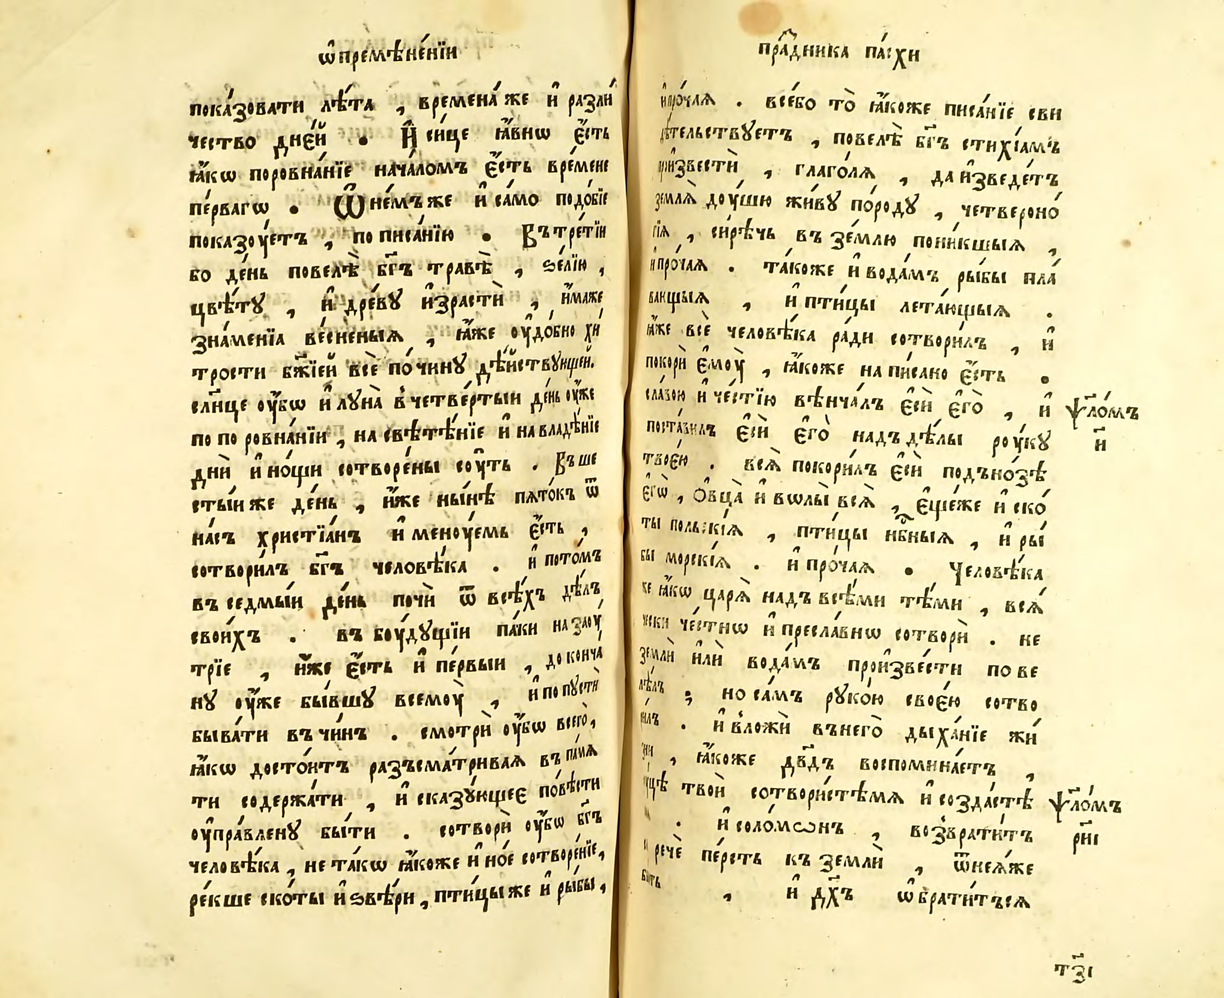 ѡ҆премѣне́нїи
пока́зовати лѣ́та , времена́ же и҆ разли́
чество дне́й . И҆ си́це ꙗ҆́внѡ є҆́сть
ꙗ҆́кѡ поровна́нїе нача́ломъ є҆́сть вре́мене
пе́рвагѡ . Ѿ не́мъ же и҆ само̀ подо́бїе
показꙋ́етъ , по писа́нїю . Въ тре́тїи
бо де́нь повелѣ̀ бг҃ъ травѣ̀ , ѕе́лїю ,
цвѣ́тꙋ , и҆ дре́вꙋ и҆зрастѝ , и҆́маже
зна́менїа ве́сненыѧ , ꙗ҆́же оу҆до́бно хи́
трости бж҃їей всѐ по чи́нꙋ дѣ́йствꙋющей.
сл҃нце оу҆́бѡ и҆ лꙋна̀ в четве́ртыи де́нь оу҆́же
по по ровна́нїи , на свѣтѣ́нїе и҆ на владѣ́нїе
днѝ и҆ но́щи сотворе́ны сꙋ́ть . Въ ше
сты́и же де́нь , и҆́же ны́нѣ пѧто́къ ѿ
на́съ христїа́нъ и҆менꙋ́емь є҆́сть ,
сотвори́лъ бг҃ъ человѣ́ка . и҆ пото́мъ
въ седмы́и де́нь почѝ ѿ всѣ́хъ дѣ́лъ
свои́хъ . въ бꙋ́дꙋщїи па́ки на заꙋ́
трїе , и҆́же є҆́сть и҆ пе́рвыи , до конча́
нꙋ оу҆́же бы́вшꙋ всемꙋ̀ , и҆ по пꙋстѝ
быва́ти въ чи́нъ . смотрѝ оу҆́бѡ всего̀,
ꙗ҆́кѡ досто́итъ разъсма́тривая въ па́мѧ
ти содержа́ти , и҆ сказꙋ́ющее по́вѣсти
оу҆пра́вленꙋ бы́ти . сотворѝ оу҆́бѡ бг҃ъ
человѣ́ка , не та́кѡ ꙗ҆́коже и҆ но́е сотворе́нїе,
ре́кше ско́ты и҆ ѕвѣ́ри , пти́цы же и҆ ры́бы ,
пра́здника па́схи
и҆про́чаѧ . всебо то̀ ꙗ҆́коже писа́нїе сви
дѣ́тельствꙋетъ , повелѣ̀ бг҃ъ стихїа́мъ
произвестѝ , глаго́лѧ , да и҆зведе́тъ
землѧ̀ дꙋ́шю жи́вꙋ по́родꙋ , четвероно́
гїѧ , си́рѣчь въ зе́млю пони́кшыѧ ,
и҆про́чаѧ . та́коже и҆ вода́мъ ры́бы пла́
вающыѧ , и҆ пти́цы лета́ющыѧ .
ꙗ҆́же всѐ человѣ́ка ра́ди сотвори́лъ , и҆
покорѝ є҆мꙋ̀ , ꙗ҆́коже на писано є҆́сть .
сла́вою и҆ че́стїю вѣнча́лъ є҆сѝ є҆го̀ , и҆
поста́вилъ є҆сѝ є҆го̀ надъ дѣ́лы рꙋ́кꙋ
твоею . всѧ̀ покори́лъ є҆сѝ подъ но́зѣ
є҆гѡ̀ , ѻ҆́вца̀ и҆ вѡлы̀ всѧ̀ , є҆ще́же и҆ ско́
ты польскїѧ , пти́цы нб҃ныѧ , и҆ ры́
бы морскі́ѧ . и҆ про́чаѧ . Человѣ́ка
же ꙗ҆́кѡ царѧ̀ надъ все́ми тѣ́ми , всѧ́
чески че́стнѡ и҆ пресла́внѡ сотворѝ . не
землѝ и҆лѝ вода́мъ произве́сти по ве
лѣ́лъ , но са́мъ рꙋко́ю своею сотво
ри́лъ . и҆ вложѝ в него̀ дыха́нїе жи́
зни , ꙗ҆́коже дв҃дъ воспомина́етъ ,
рꙋ́цѣ твоѝ сотвори́стѣмѧ и҆ созда́стѣ
. и҆ соло́мѡнъ , возврати́тъ
и҆ речѐ пе́рсть къ землѝ , ѿнеѧ́же
бысть , и҆ дх҃ъ ѡ҆брати́тъсѧ
ѱало́мъ
и҃
ѱало́мъ
рн҃і
тѯ҃і